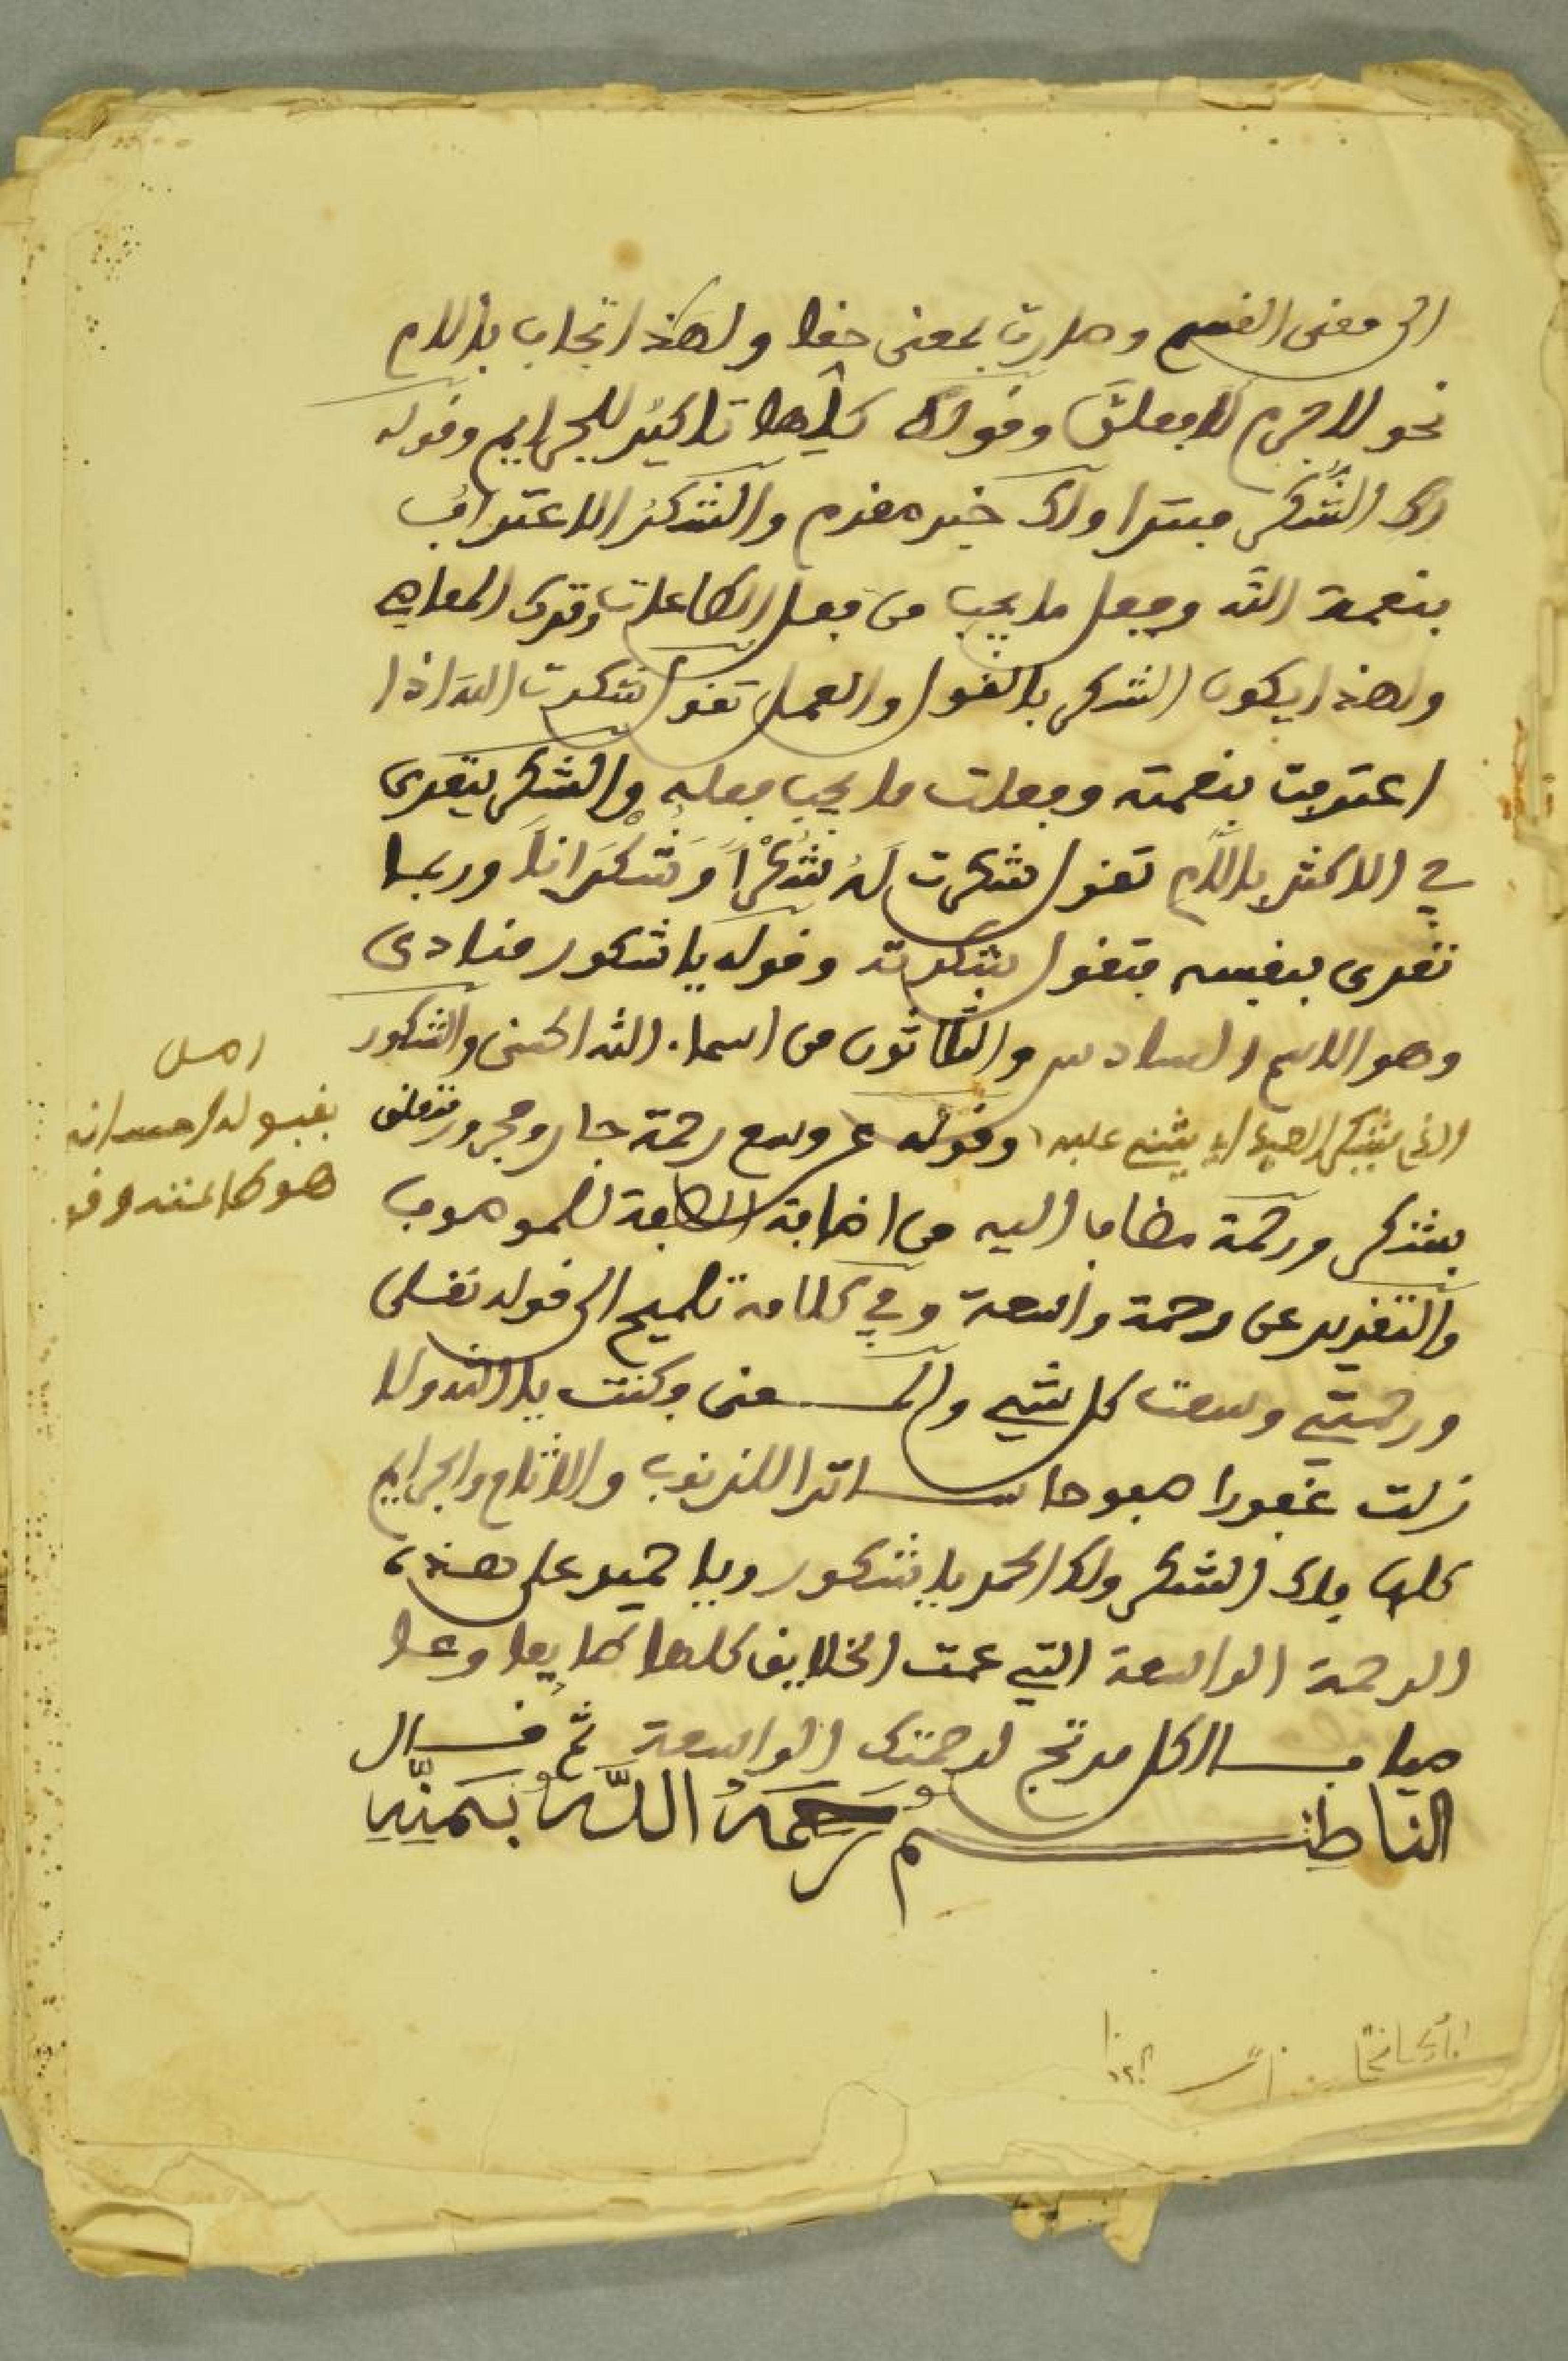 الى معنى القسم وصارت بمعنى حقا ولهذا تجاب باللام
نحو لاجرم لافعلن وقوله كلها تاكيد للجرايم وقوله
لك الشكر مبتدا ولك خبر مقدم والشكر الاعتراف
بنعمة الله وفعل ما يجب من فعل الطاعات وترك المعاصي
ولهذا يكون الشكر بالقول والعمل تقول شكرت الله اذا
اعترفت بنعمته وفعلت ما يجب فعله والشكر يتعدى
في الاكثر باللام تقول شكرت له شُكْراً وَشُكْرَاناً وربما
تعدى بنفسه فتقول شكرته وقوله يا شكور منادى
وهو الاسم السادس والثلاثون من اسماء الله الحسنى والشكور
الذي يشكر اي يثني عليه وقوله عن وسع رحمة جار ومجرور متعلق
بشكر ورحمة مضاف اليه من اضافة الصفة للموصوف
والتقدير عن رحمة واسعة وفي كلامه تلميح الى قوله تعلى
ورحمتي وسعت كل شيء والمعنى وكنت يا الله ولا
زلت غفورا صفوحا ساترا للذنوب والاثام والجرايم
كلها فلك الشكر ولك الحمد يا شكور ويا حميد على هذه
الرحمة الواسعة التي عمت الخلايق كلها طايعا وعا
صيا فالكل مرتج لرحمتك الواسعة ثم قال
الناظم رَحِمَهُ اللَّه بِمَنِّهِ
هو كما